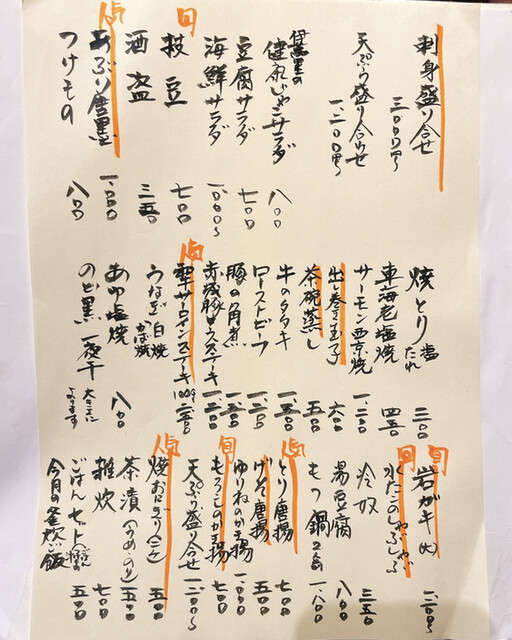 刺身盛り合せ 三〇〇〇円〜
天ぷら盛り合わせ 一、二〇〇円〜
健康しゃきサラダ 八〇〇
豆腐サラダ 七〇〇
海鮮サラダ 一、〇〇〇〜
旬
枝豆 七〇〇
酒盗 三五〇
人気
あぶり唐墨 一、〇〇〇
つけもの 八〇〇
焼とり 塩 たれ 三〇〇
車海老塩焼 四五〇
サーモン西京焼 一、二〇〇
出し巻き玉子 六〇〇
茶碗蒸し 五〇〇
牛のタタキ 一、五〇〇
ローストビーフ
豚の角煮
人気
サーロインステーキ 100g
うなぎ 白焼 かば焼
あゆ塩焼 八〇〇
のど黒一夜干 大きさによります
旬
岩ガキ(大)
旬
水たこのしゃぶしゃぶ
冷奴 三五〇
湯豆腐 八〇〇
もつ鍋 一、八〇〇
人気
とり唐揚 七〇〇
げそ唐揚 五〇〇
ゆりねのかき揚 一、〇〇〇
旬
もろこしのかき揚 七〇〇
天ぷら盛り合せ 一、二〇〇〜
人気
焼おにぎり(二ケ) 五〇〇
茶漬(うめ・のり) 五〇〇
雑炊 七〇〇
ごはんセット 五〇〇
今月の釜炊ご飯